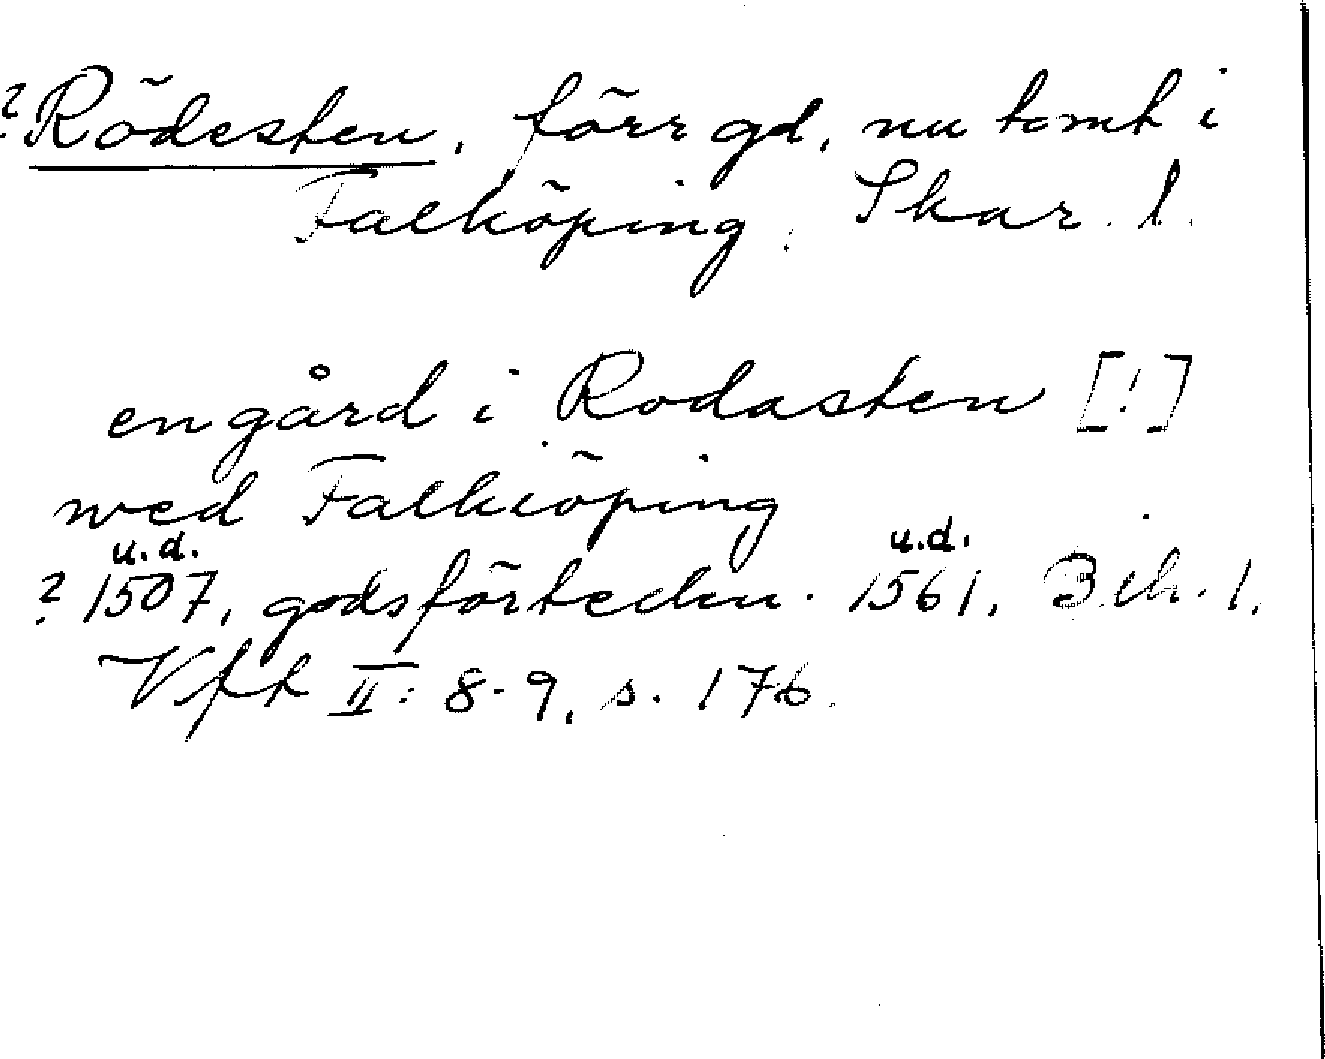 ? Rödesten, förr gd, nu tomt i
Falköping. Skar. l.
en gård i Rodasten [!]
wed Falkiöping
u.d. u.d.
? 1507, godsförteckn. 1561, Bih. 1.
Vft II: 8-9, s. 176.